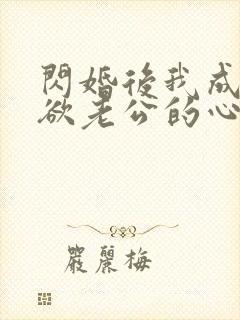 閃婚後我成
欲老公的心
嚴麗梅